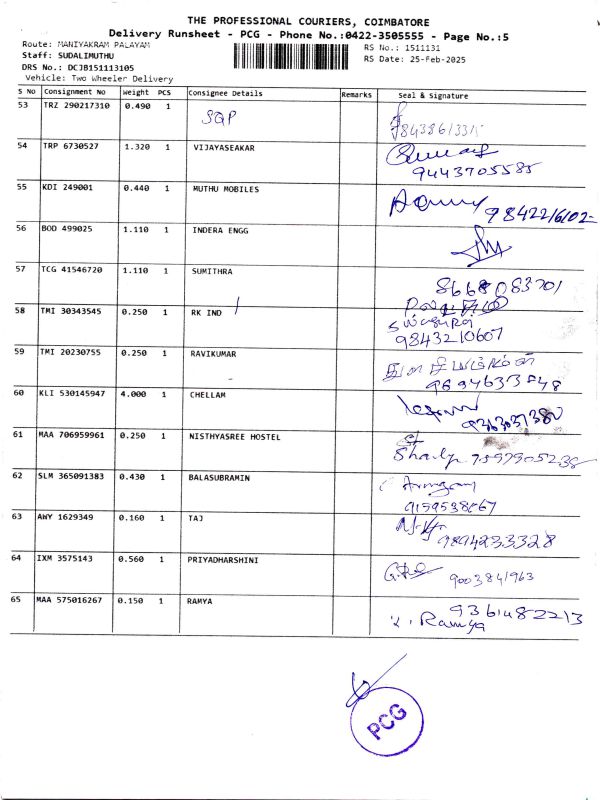 THE PROFESSIONAL COURIERS, COIMBATORE
Delivery Runsheet - PCG - Phone No.:0422-3505555 - Page No.:5
Route: MANIYAKRAM PALAYAM RS No.: 1511131
Staff: SUDALIMUTHU RS Date: 25-Feb-2025
DRS No.: DCJB151113105
Vehicle: Two Wheeler Delivery
S No Consignment No Weight PCS Consignee Details Remarks Seal & Signature
53 TRZ 290217310 0.490 1 SGP
54 TRP 6730527 1.320 1 VIJAYASEAKAR
9443705585
55 KDI 249001 0.440 1 MUTHU MOBILES
56 BOD 499025 1.110 1 INDERA ENGG
57 TCG 41546720 1.110 1 SUMITHRA 8668083701
58 TMI 30343545 0.250 1 RK IND
9843210607
59 TMI 20230755 0.250 1 RAVIKUMAR
60 KLI 530145947 4.000 1 CHELLAM
61 MAA 706959961 0.250 1 NISTHYASREE HOSTEL
62 SLM 365091383 0.430 1 BALASUBRAMIN
63 AWY 1629349 0.160 1 TAJ
9894233328
64 IXM 3575143 0.560 1 PRIYADHARSHINI 9003841963
65 MAA 575016267 0.150 1 RAMYA 9361482213
Ramya
PCG